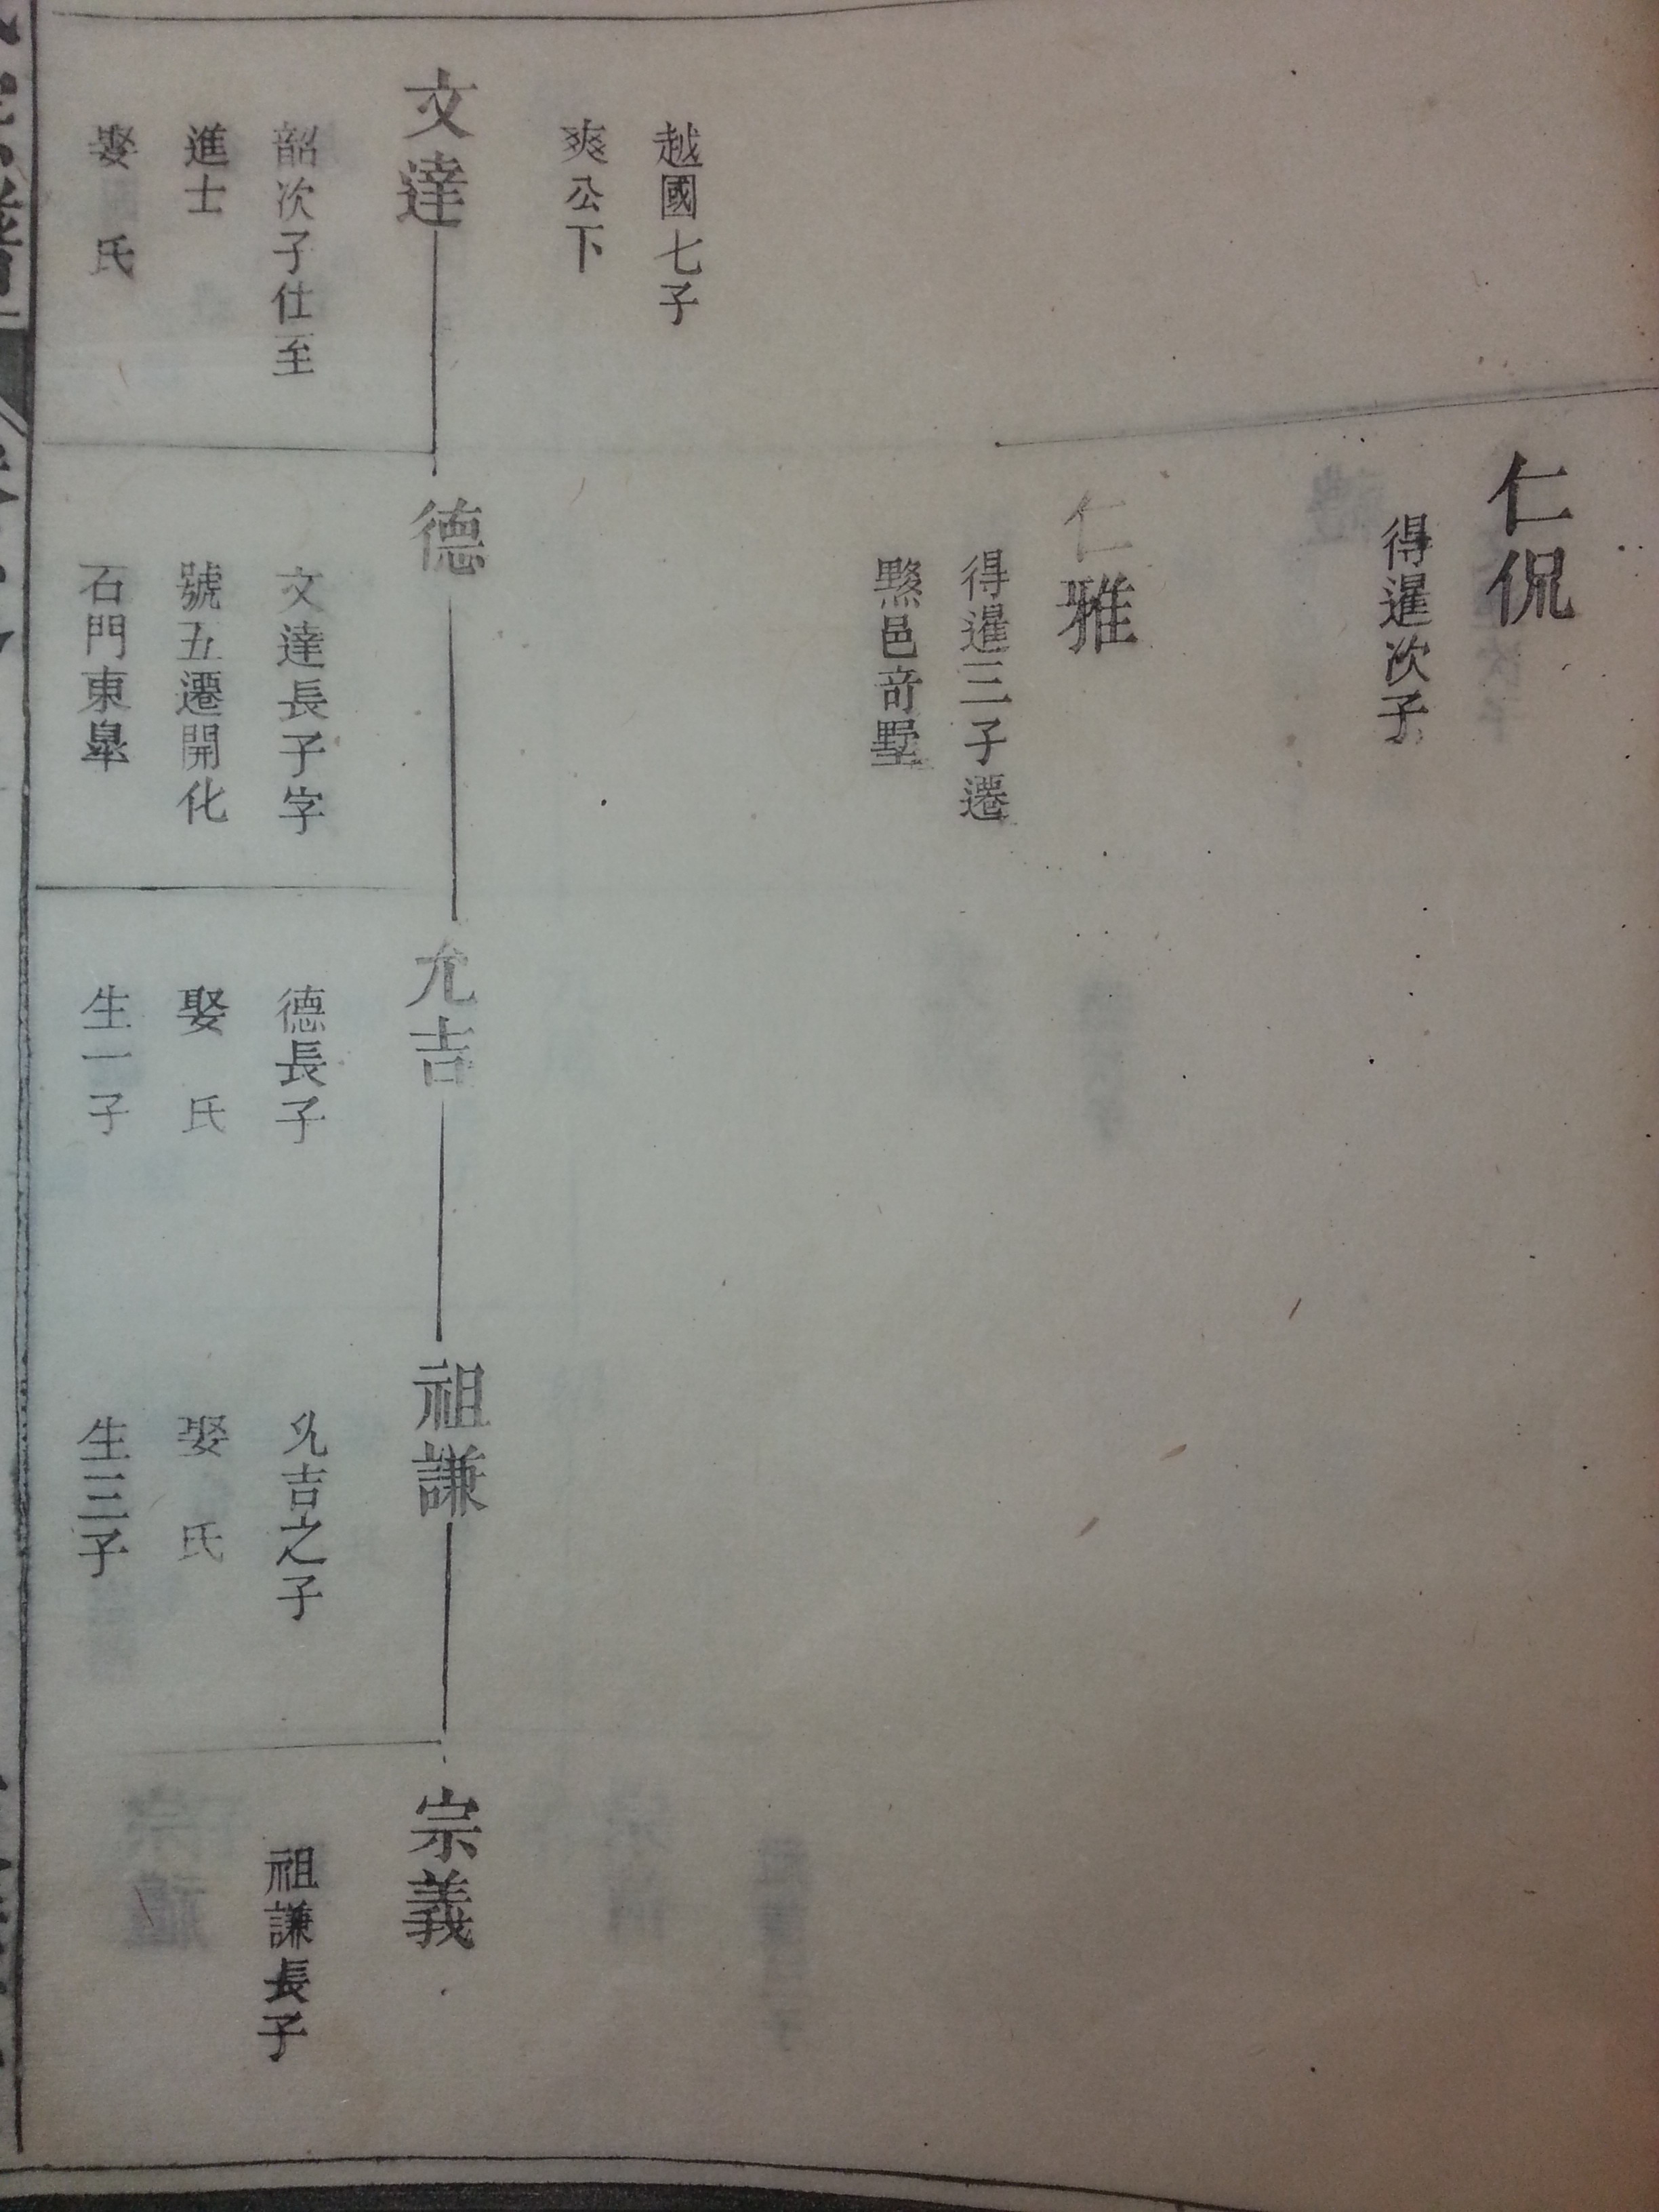 仁侃
得暹次子
仁雅
得暹三子遷
黟邑奇墅
越國七子
爽公下
文達
韶次子仕至
進士
娶 氏
德
文達長子字
號五遷開化
石門東皐
允吉
德長子
娶 氏
生一子
祖謙
允吉之子
娶 氏
生三子
宗義
祖謙長子